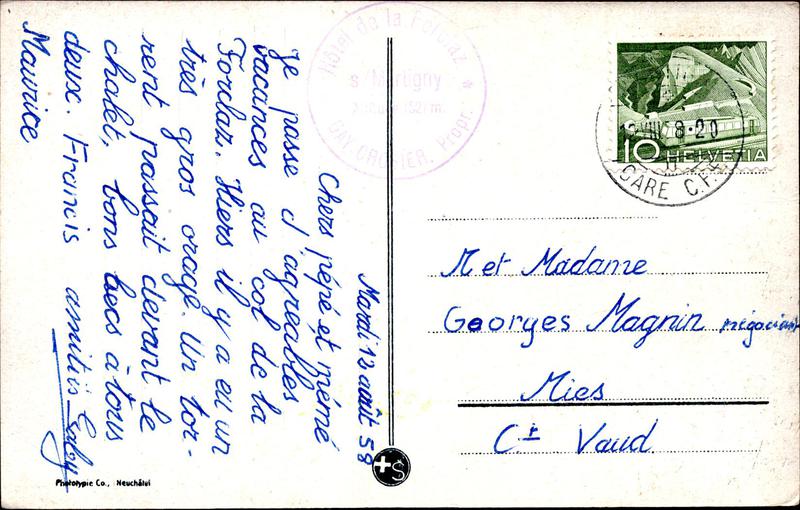 Mardi 12 août 58
Chers pépé et mémé
Je passe d'agréables
vacances au col de la
Forclaz. Hiers il y a eu un
très gros orage. Un tor-
rent passait devant le
chalet, bons becs à tous
deux. Francis amitiés Gaby
Maurice
Hôtel de la Forclaz
s/Martigny
GAY-CROSIER, Propr.
HELVETIA
10
18-20
GARE C.F.F.
M et Madame
Georges Magnin négociant
Mies
Ct Vaud
Phototypie Co., Neuchâtel